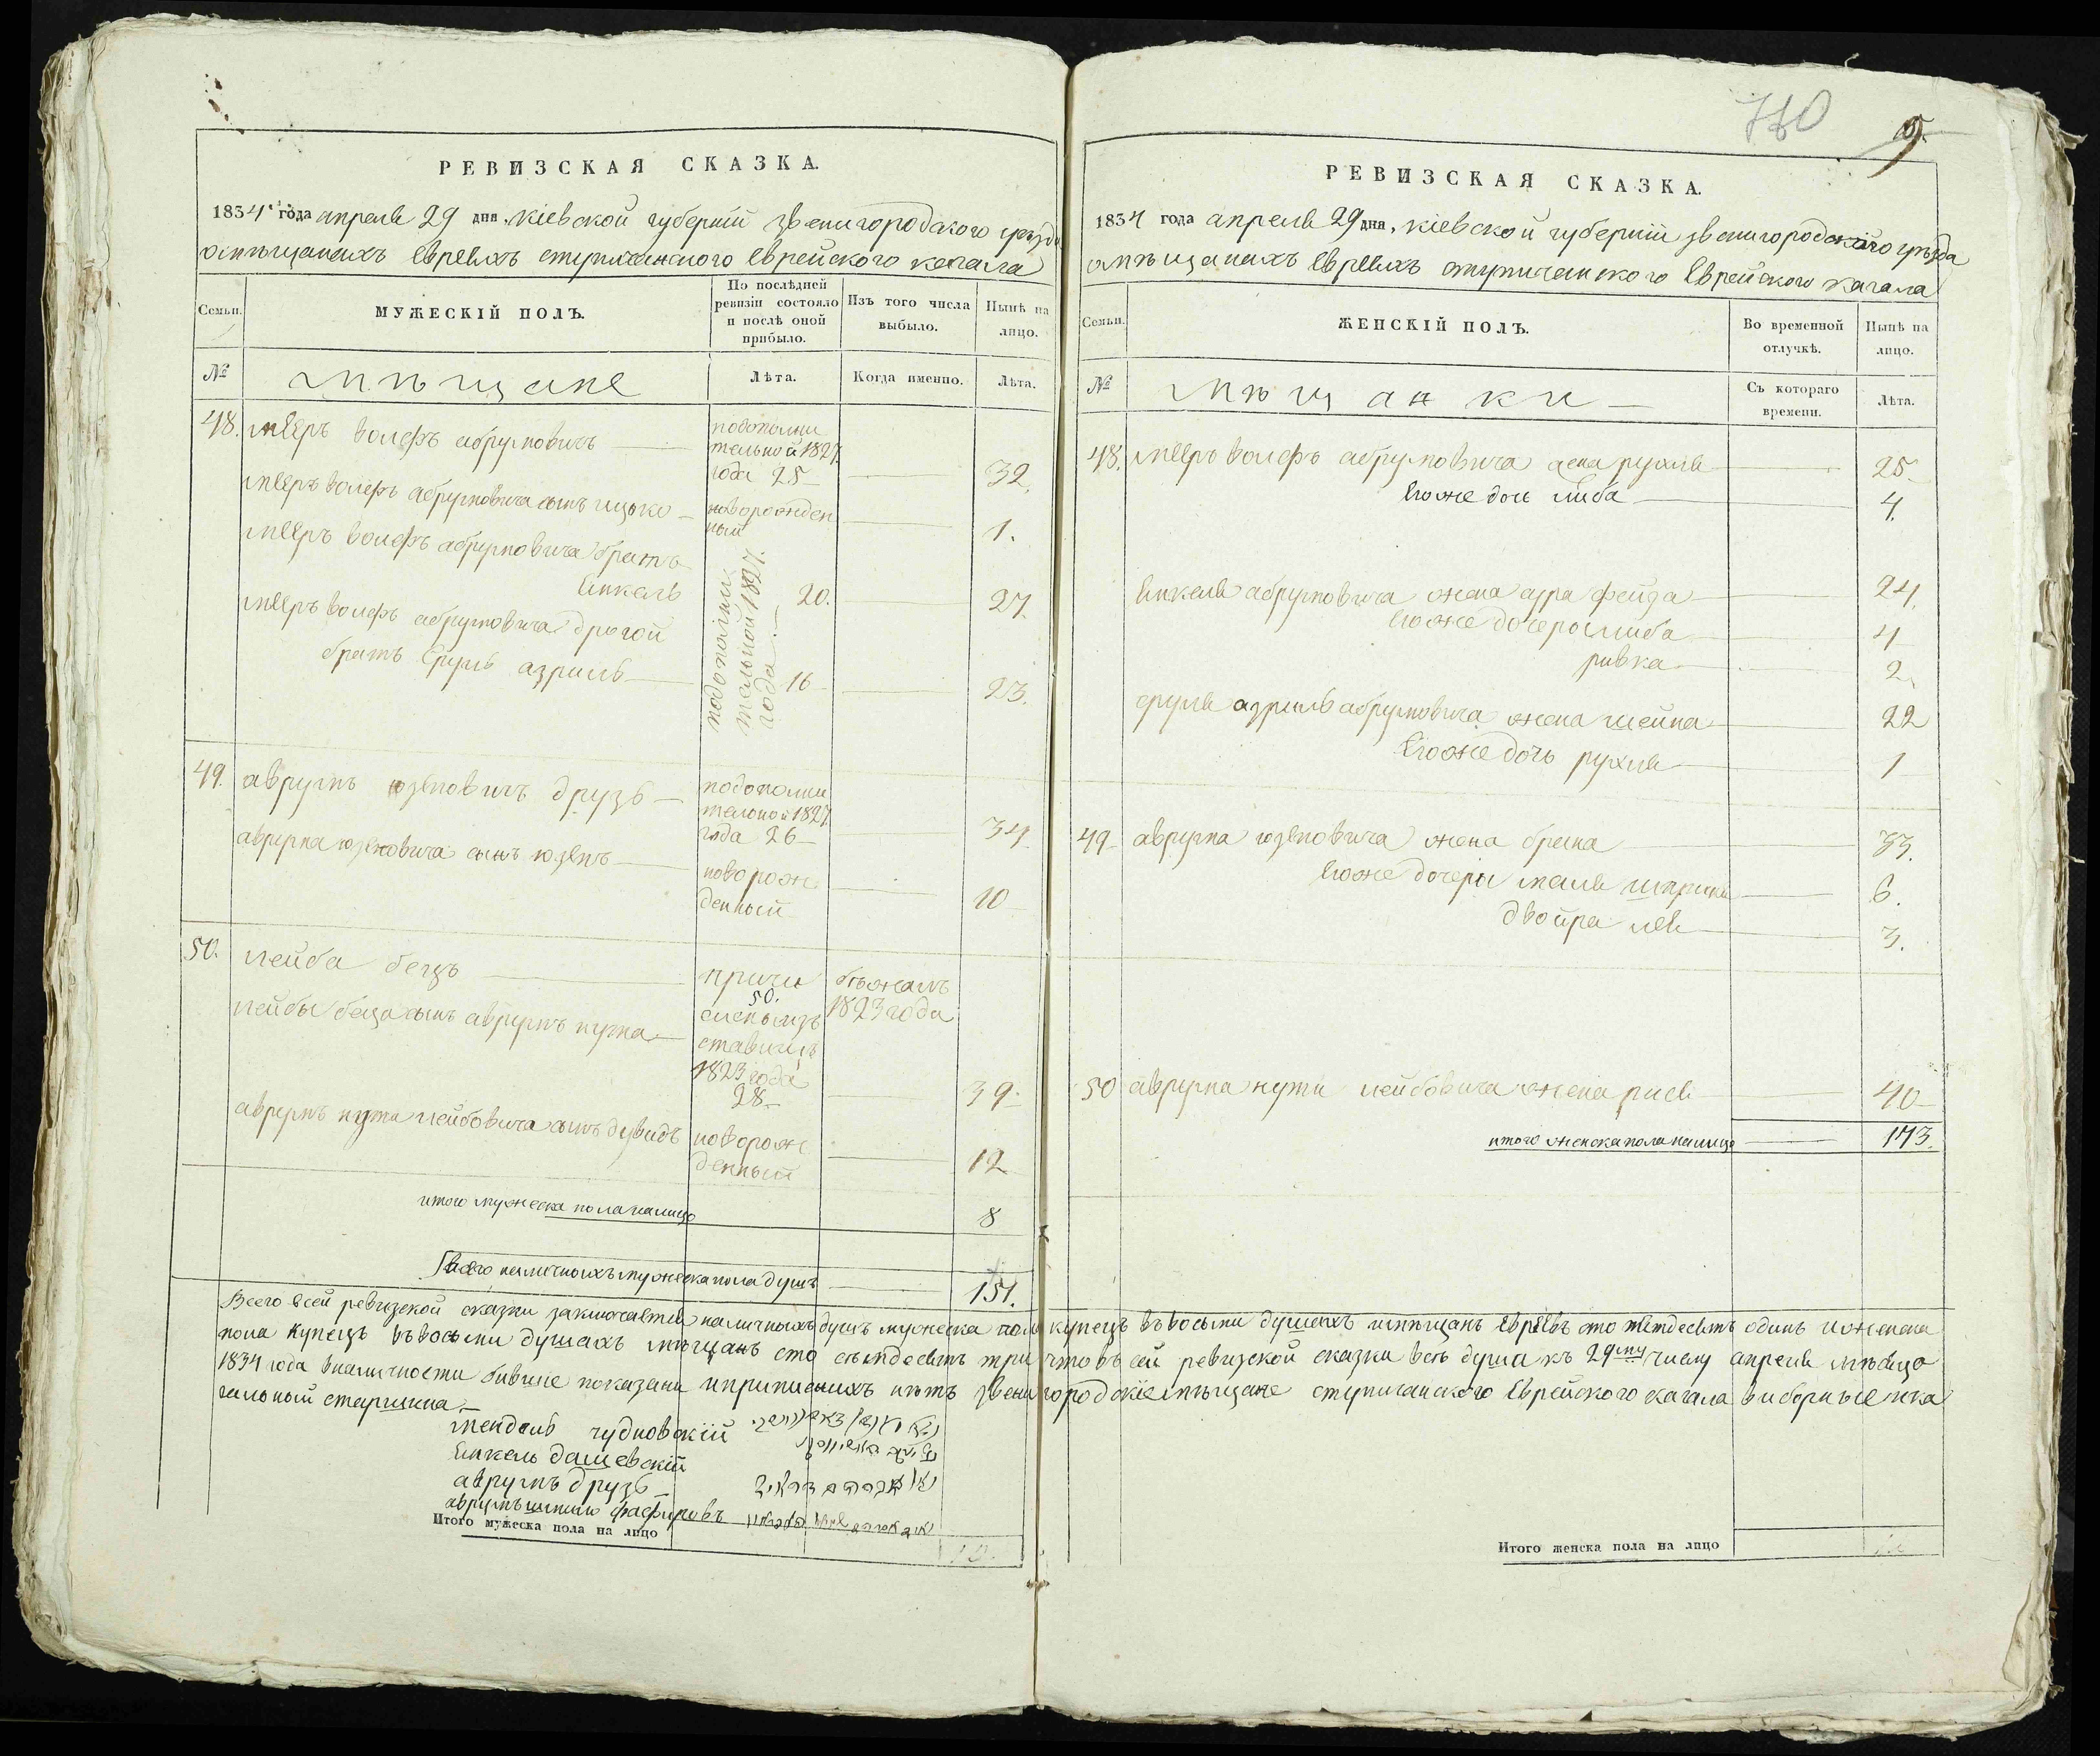 РЕВИЗСКАЯ СКАЗКА.
1834 года апреля 29 дня, Кіевской губерніи звенигородского уѣзда
омѣщанахъ Евреяхъ ступичанского Еврейского кагала
Семьи.
МУЖЕСКІЙ ПОЛЪ.
По послѣдней ревизіи состояло и послѣ оной прибыло.
Изъ того числа выбыло.
Нынѣ на лицо.
№
мѣщане
Лѣта.
Когда именно.
Лѣта.
48. мееръ волфъ аврумовичъ
подополнительной 1827 года 25
32.
мееръ волфъ аврумовича сынъ ицько
новорожденный
1.
мееръ волфъ аврумовича братъ
Янкель
20.
27.
мееръ волфъ аврумовича другой
братъ Сруль азриль
16
23.
подополнительной 1827. года
49. аврумъ юзеповичъ друзь
подополнительной 1827 года 26
34
аврума юзеповича сынъ юзепъ
новорожденный
10
50. лейба бецъ
причисленъ изъ ставищъ 1823 года
50.
бѣжалъ 1823 года
лейбы беца сынъ аврумъ нута
28
39
аврумъ нута лейбовича сынъ дувидъ
новорожденный
12
итого мужеска пола налицо
8
Всего наличныхъ мужеска пола душъ
151.
РЕВИЗСКАЯ СКАЗКА.
740
9
1834 года апреля 29 дня, Кіевской губерніи звенигородского уѣзда
омѣщанахъ Евреяхъ ступичанского Еврейского кагала
Семьи.
ЖЕНСКІЙ ПОЛЪ.
Во временной отлучкѣ.
Нынѣ на лицо.
№
мѣщанки
Съ котораго времени.
Лѣта.
48. мееръ волфъ аврумовича жена рухля
25
Егоже дочь либа
4.
Янкеля аврумовича жена сура фейга
24.
Егоже дочеры либа
4
ривка
2.
сруля азриль аврумовича жена шейна
22
Егоже дочь рухля
1
49 аврума юзеповича жена брана
33.
Егоже дочеры
6.
двойра лея
3.
50 аврума нути лейбовича жена рися
40
итого женска пола налицо
173.
Всего всей ревизской сказки заключается наличныхъ душъ мужеска пола купецъ въ восьми душахъ мѣщанъ Евреевъ сто пятдесятъ одинъ и женска
пола купецъ въ восьми душахъ мѣщанъ сто семдесятъ три что въ сей ревизской сказки всѣ душа къ 29му числу апреля мѣсяца
1834 года вналичности бывшие показани и приписныхъ нѣтъ звенигородскіе мѣщане ступичанского Еврейского кагала виборные и ка
гальный старшина
мендель чудновскій
Янкель дашевскій
аврумъ друзь
аврумъ
Итого мужеска пола на лицо
Итого женска пола на лицо